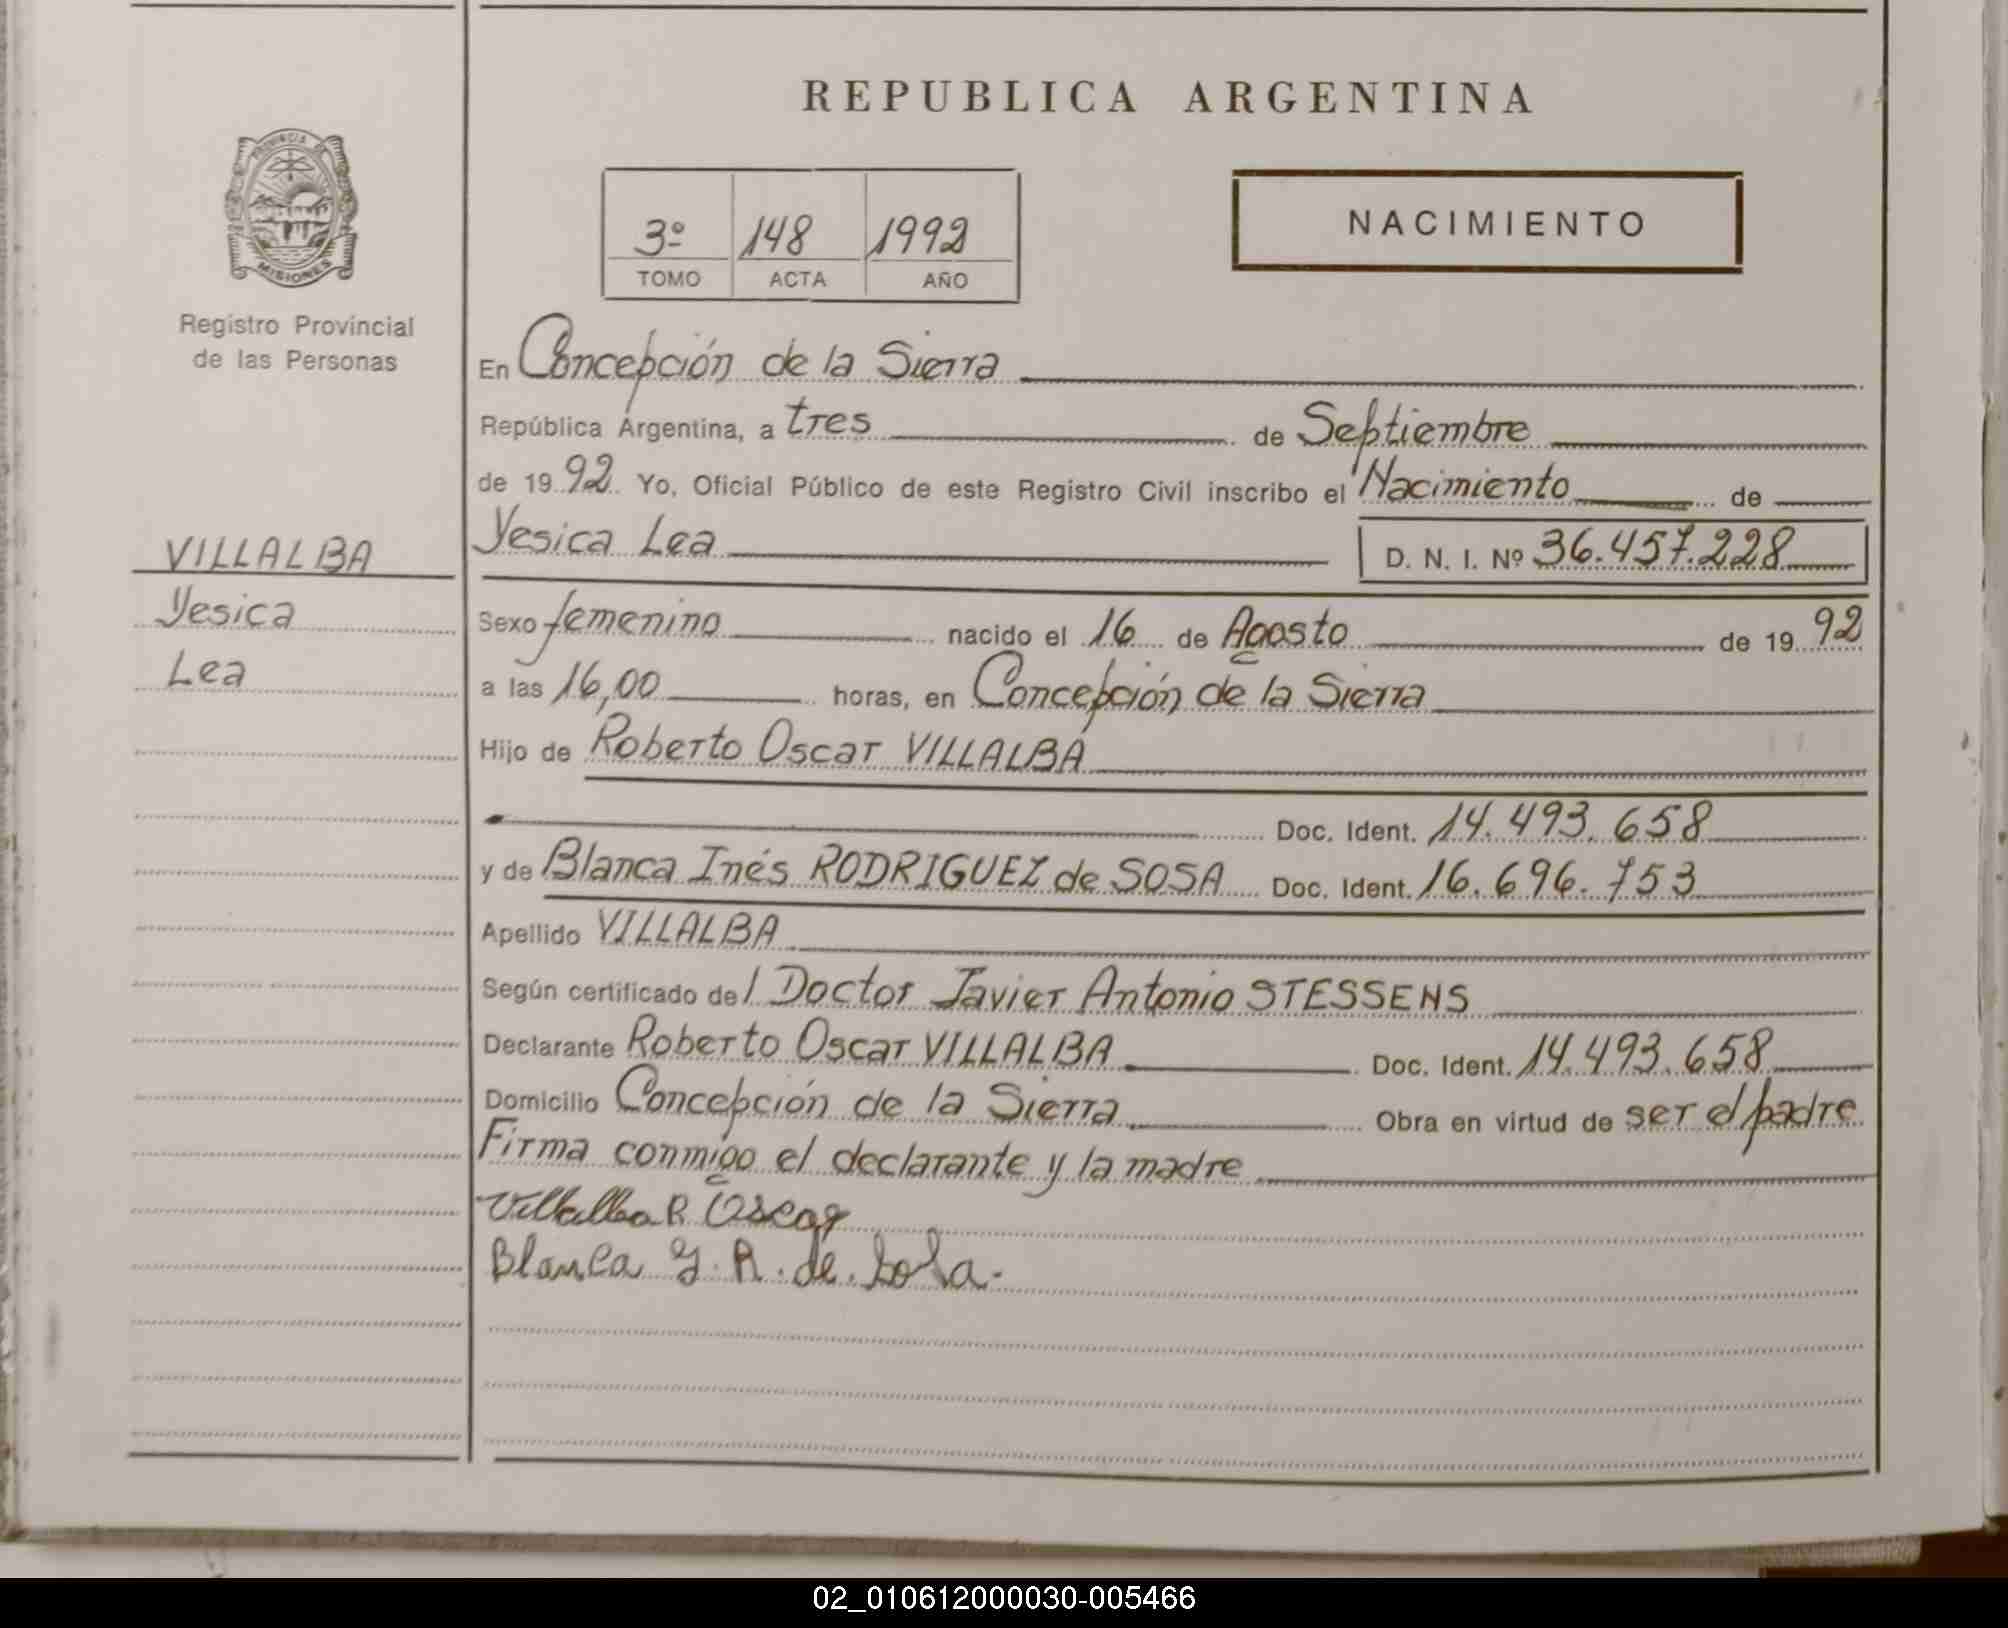 REPUBLICA ARGENTINA
PROVINCIA DE
MISIONES
Registro Provincial
de las Personas
3º 148 1992
TOMO ACTA AÑO
NACIMIENTO
En Concepción de la Sierra
República Argentina, a tres de Septiembre
de 1992 Yo, Oficial Público de este Registro Civil inscribo el Nacimiento de
Yesica Lea D. N. I. Nº 36.457.228
VILLALBA
Yesica
Lea
Sexo femenino nacido el 16 de Agosto de 1992
a las 16,00 horas, en Concepción de la Sierra
Hijo de Roberto Oscar VILLALBA
Doc. Ident. 14.493.658
y de Blanca Inés RODRIGUEZ de SOSA Doc. Ident. 16.696.753
Apellido VILLALBA
Según certificado del Doctor Javier Antonio STESSENS
Declarante Roberto Oscar VILLALBA Doc. Ident. 14.493.658
Domicilio Concepción de la Sierra Obra en virtud de ser el padre
Firma conmigo el declarante y la madre
Villalba R Oscar
Blanca Y. R. de Sosa.
02_010612000030-005466